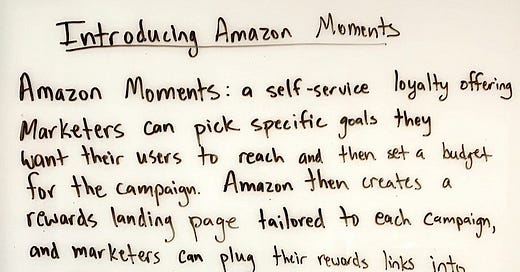 Introducing Amazon Moments
Amazon Moments: a self-service loyalty offering
Marketers can pick specific goals they
want their users to reach and then set a budget
for the campaign. Amazon then creates a
rewards landing page tailored to each campaign,
and marketers can plug their rewards links into